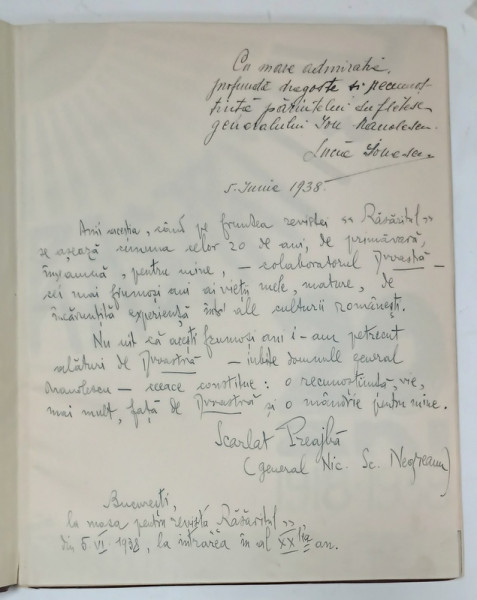 Cu mare admirație,
profundă dragoste și recunoș-
tință părintelui sufletesc
generalului Ion Manolescu.
Lucia Ionescu
5. Iunie 1938.
Anii aceștia, când pe fruntea revistei „Răsăritul”
se așează cununa celor 20 de ani, de primăvară,
înseamnă, pentru mine, – colaboratorul Dvoastră –
cei mai frumoși ani ai vieții mele, mature, de
încărunțită experiență într'ale culturii românești.
Nu uit că acești frumoși ani i-am petrecut
alături de Dvoastră – iubite domnule general
Manolescu – ceeace constitue: o recunoștință, vie,
mai mult, față de Dvoastră și o mândrie pentru mine.
Scarlat Preajbă
(general Nic. Sc. Negreanu)
București,
la masa pentru revista Răsăritul”
din 5 VI 1938, la intrarea în al XX lea an.